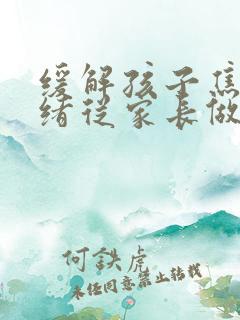 缓解孩子焦
绪从家长做
何鉄虎
未经同意禁止转载